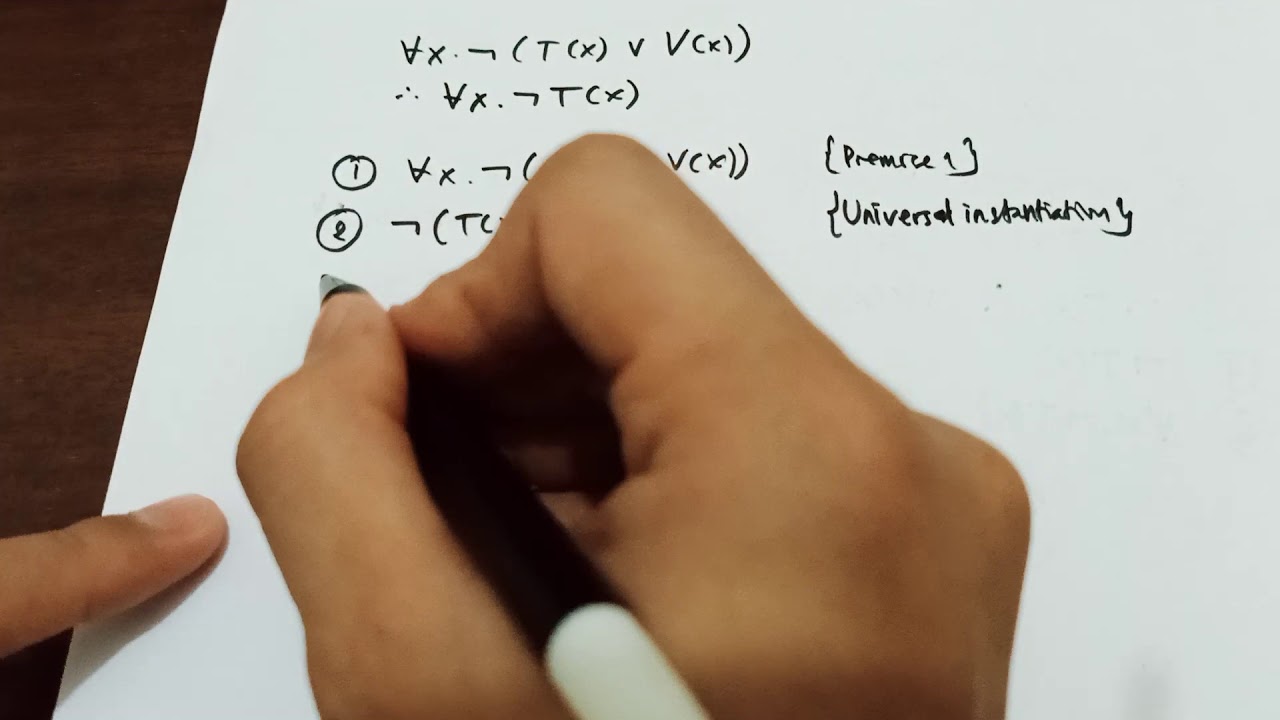 ∀x.¬(T(x) ∨ V(x))
∴ ∀x.¬T(x)
① ∀x.¬( V(x)) {Premise 1}
② ¬(T( {Universal instantiation}